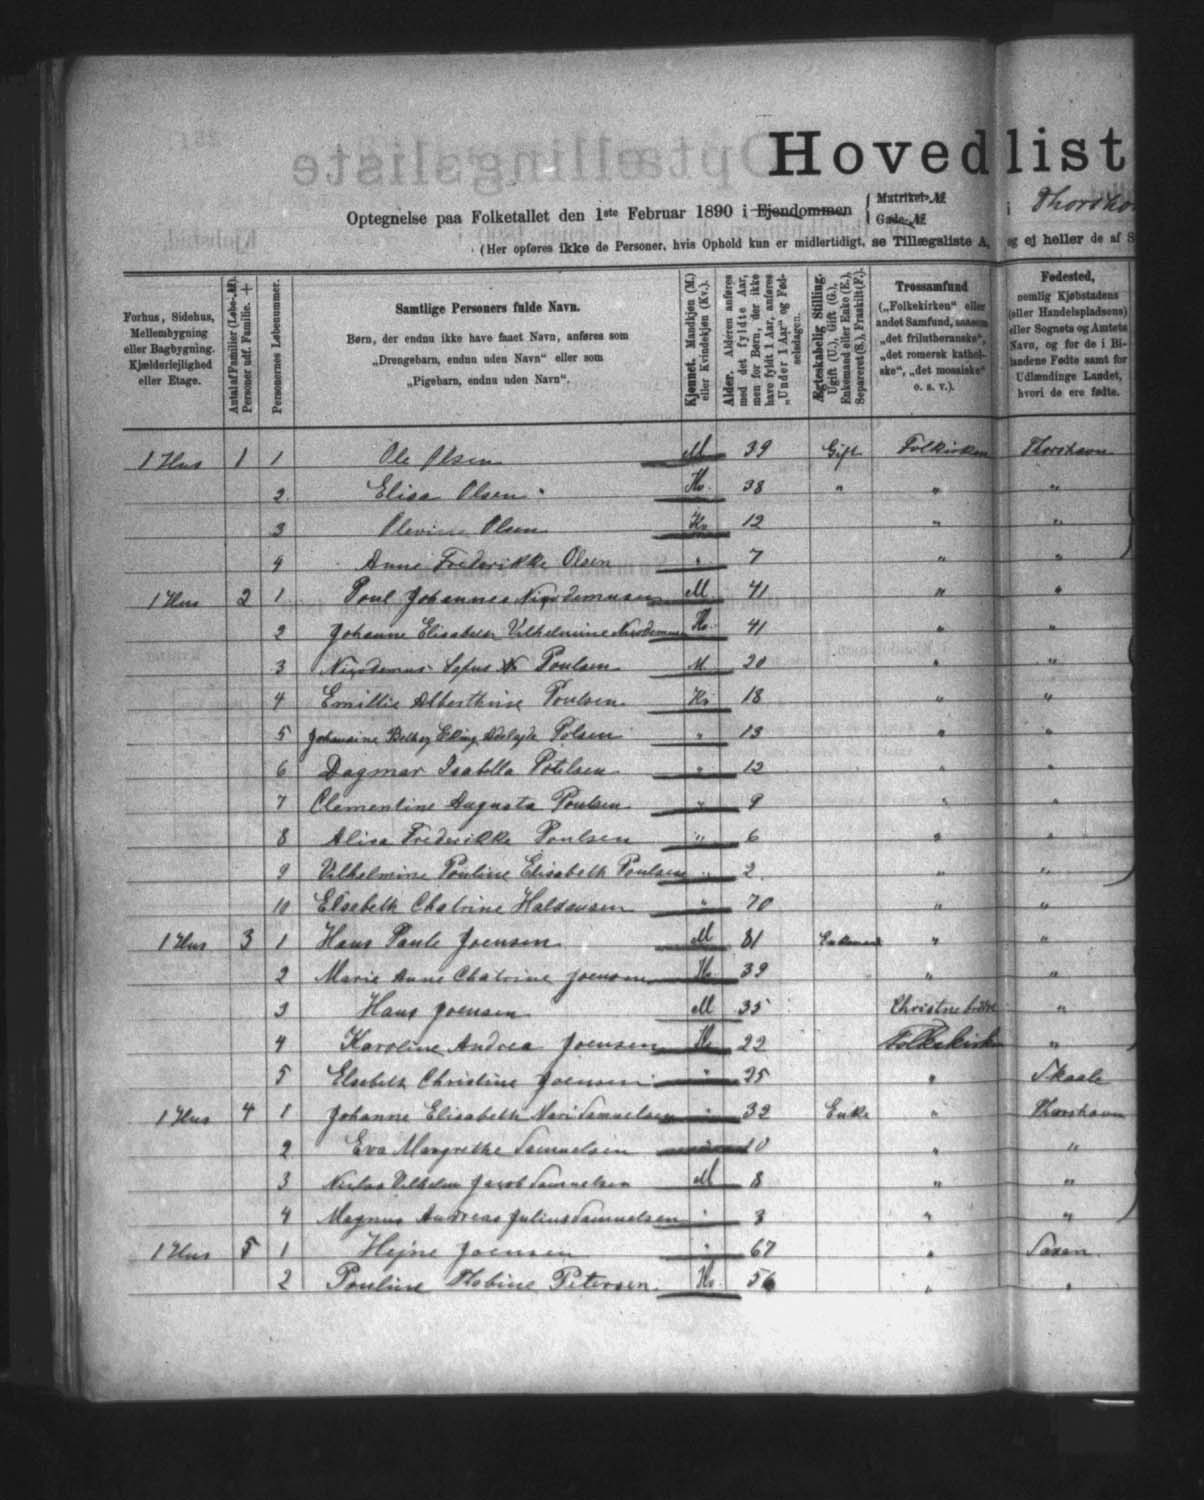 Hovedlist
Optegnelse paa Folketallet den 1ste Februar 1890 i Ejendommen { Matrikel-№ Gade-№ i
(Her opføres ikke de Personer, hvis Ophold kun er midlertidigt, se Tillægsliste A, og ej heller de af S
Forhus, Sidehus, Mellembygning eller Bagbygning. Kjælderlejlighed eller Etage.
Antal af Familier (Løbe-№). Personer udf. Familie. +
Personernes Løbenummer.
Samtlige Personers fulde Navn.
Børn, der endnu ikke have faaet Navn, anføres som
„Drengebarn, endnu uden Navn“ eller som
„Pigebarn, endnu uden Navn“.
Kjønnet. Mandkjøn (M.) eller Kvindekjøn (Kv.).
Alder. Alderen anføres med det fyldte Aar, men for Børn, der ikke have fyldt 1 Aar, anføres „Under 1 Aar“ og Fødselsdagen.
Ægteskabelig Stilling. Ugift (U.), Gift (G.), Enkemand eller Enke (E.), Separeret (S.), Fraskilt (F.).
Trossamfund („Folkekirken“ eller andet Samfund, saasom „det frilutheranske“, „det romersk katholske“, „det mosaiske“ o. s. v.).
Fødested, nemlig Kjøbstadens (eller Handelspladsens) eller Sognets og Amtets Navn, og for de i Bilandene Fødte samt for Udlændinge Landet, hvori de ere fødte.
1 Hus 1 1 Ole Olsen M 39 Gift Folkirken Thorshavn
2 Elisa Olsen Kv. 38 " " "
3 Olevine Olsen Kv 12 " "
4 Anne Frederikke Olsen " 7 " "
1 Hus 2 1 Poul Johannes Nicodemusen M 41 " "
2 Johanne Elisabeth Vilhelmine Kv. 41 " "
3 Nicodemus Sofus Poulsen M. 20 " "
4 Emillie Alberthine Poulsen Kv 18 " "
5 Polsen " 13 " "
6 Dagmar Isabella Polsen " 12 " "
7 Clementine Augusta Poulsen " 9 " "
8 Alisa Frederikke Poulsen " 6 " "
9 Vilhelmine Pouline Elisabeth Poulsen " 2 " "
10 Elsebeth Chatrine " 70 " "
1 Hus 3 1 Hans Paule Joensen M 81 Enkemand " "
2 Marie Anne Chatrine Joensen Kv 39 " "
3 Hans Joensen M 35 "
4 Karoline Andrea Joensen Kv 22 Folkekirken "
5 Elsebeth Christine Joensen " 25 " Skaale
1 Hus 4 1 Johanne Elisabeth Mari Samuelsen " 32 Enke " Thorshavn
2 Eva Margrethe Samuelsen " 10 " "
3 Vilhelm Jacob Samuelsen M 8 " "
4 Magnus Andreas Julius Samuelsen " 3 " "
1 Hus 5 1 Hejne Joensen " 67 "
2 Pouline Petersen Kv 56 " "